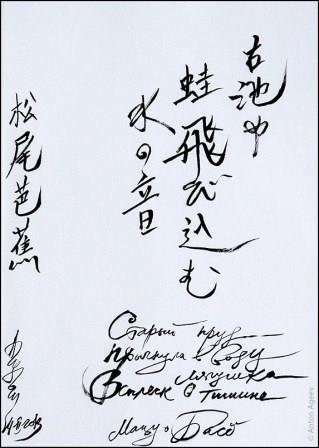 古池や
蛙飛び込む
水の音
松尾芭蕉
Старый пруд
Прыгнула в воду
лягушка
Всплеск в тишине
Мацуо Басё
© Anton Ageev